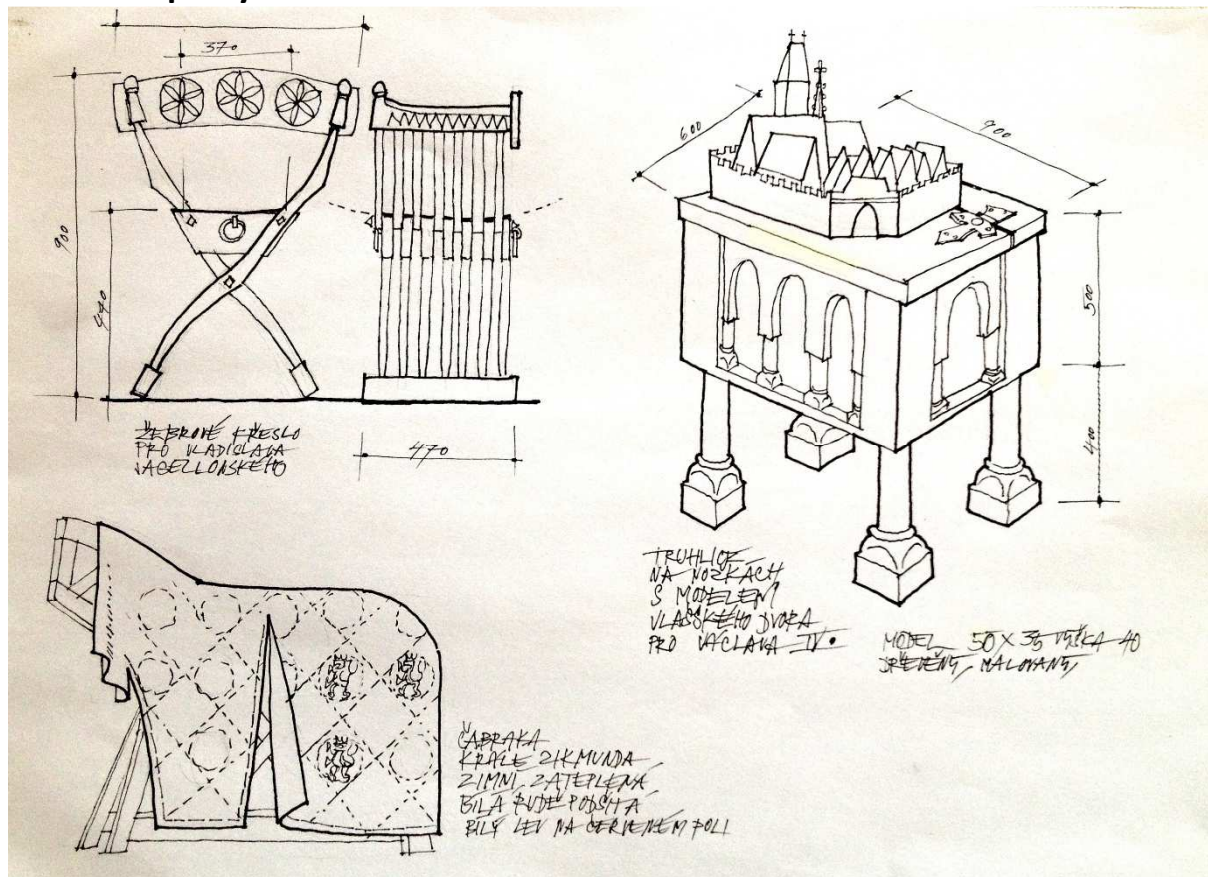 370
900
440
ŽEBROVÉ KŘESLO
PRO VLADISLAVA
JAGELLONSKÉHO
470
600
900
500
400
TRUHLICE
NA NOŽKÁCH
S MODELEM
VLAŠSKÉHO DVORA
PRO VÁCLAVA IV.
MODEL 50 X 35 VÝŠKA 40
DŘEVĚNÝ, MALOVANÝ
ČABRAKA
KRÁLE ZIKMUNDA
ZIMNÍ, ZATEPLENÁ
BÍLÁ RUDĚ PODŠITÁ
BÍLÝ LEV NA ČERVENÉM POLI